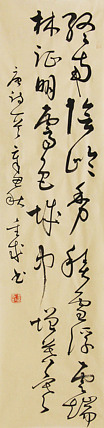 終南陰岭秀積雪浮雲端
林明霽色城中增暮寒
唐詩一首辛丑秋书